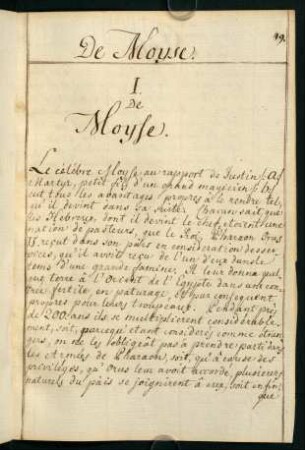 49.
De Moyse.
I.
De
Moyse.
Le célébre Moyse, au rapport de Justin
Martyr, petit fils d'un grand magicien,
eut tous les avantages propres à le rendre tel,
qu'il devint dans la suite. Chacun sait, que
les Hebreux, dont il devint le chef, etoient une
nation de pasteurs, que le Roi Pharaon Orus
II. reçut dans son païs en considération des ser
vices, qu'il avoit reçu de l'un d'eux dans le
tems d'une grande famine. Il leur donna quel
que terre à l'Orient de l'Egypte dans une con
trée, fertile, en paturage, et par consequent
propres pour leurs troupeaux. Pendant près
de 200. ans ils se multiplierent considerable
ment, soit, parcequ'étant considerés comme etran
gers, on ne les obligeàt pas à prendre parti dans
les armées de Pharaon, soit, qu'à cause des
privilèges, qu'Orus leur avoit accordé, plusieurs
naturels du païs se joignirent à eux, soit enfin,
que